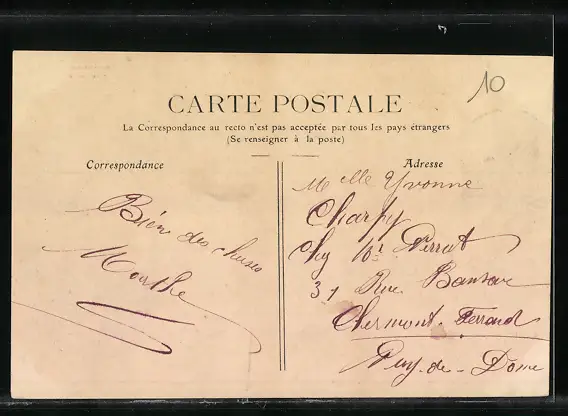 10
CARTE POSTALE
La Correspondance au recto n'est pas acceptée par tous les pays étrangers
(Se renseigner à la poste)
Correspondance
Adresse
Bien des choses
Marthe
Melle Yvonne
Charpy
Chez Mr Perrat
31 Rue Bansac
Clermont-Ferrand
Puy-de-Dome